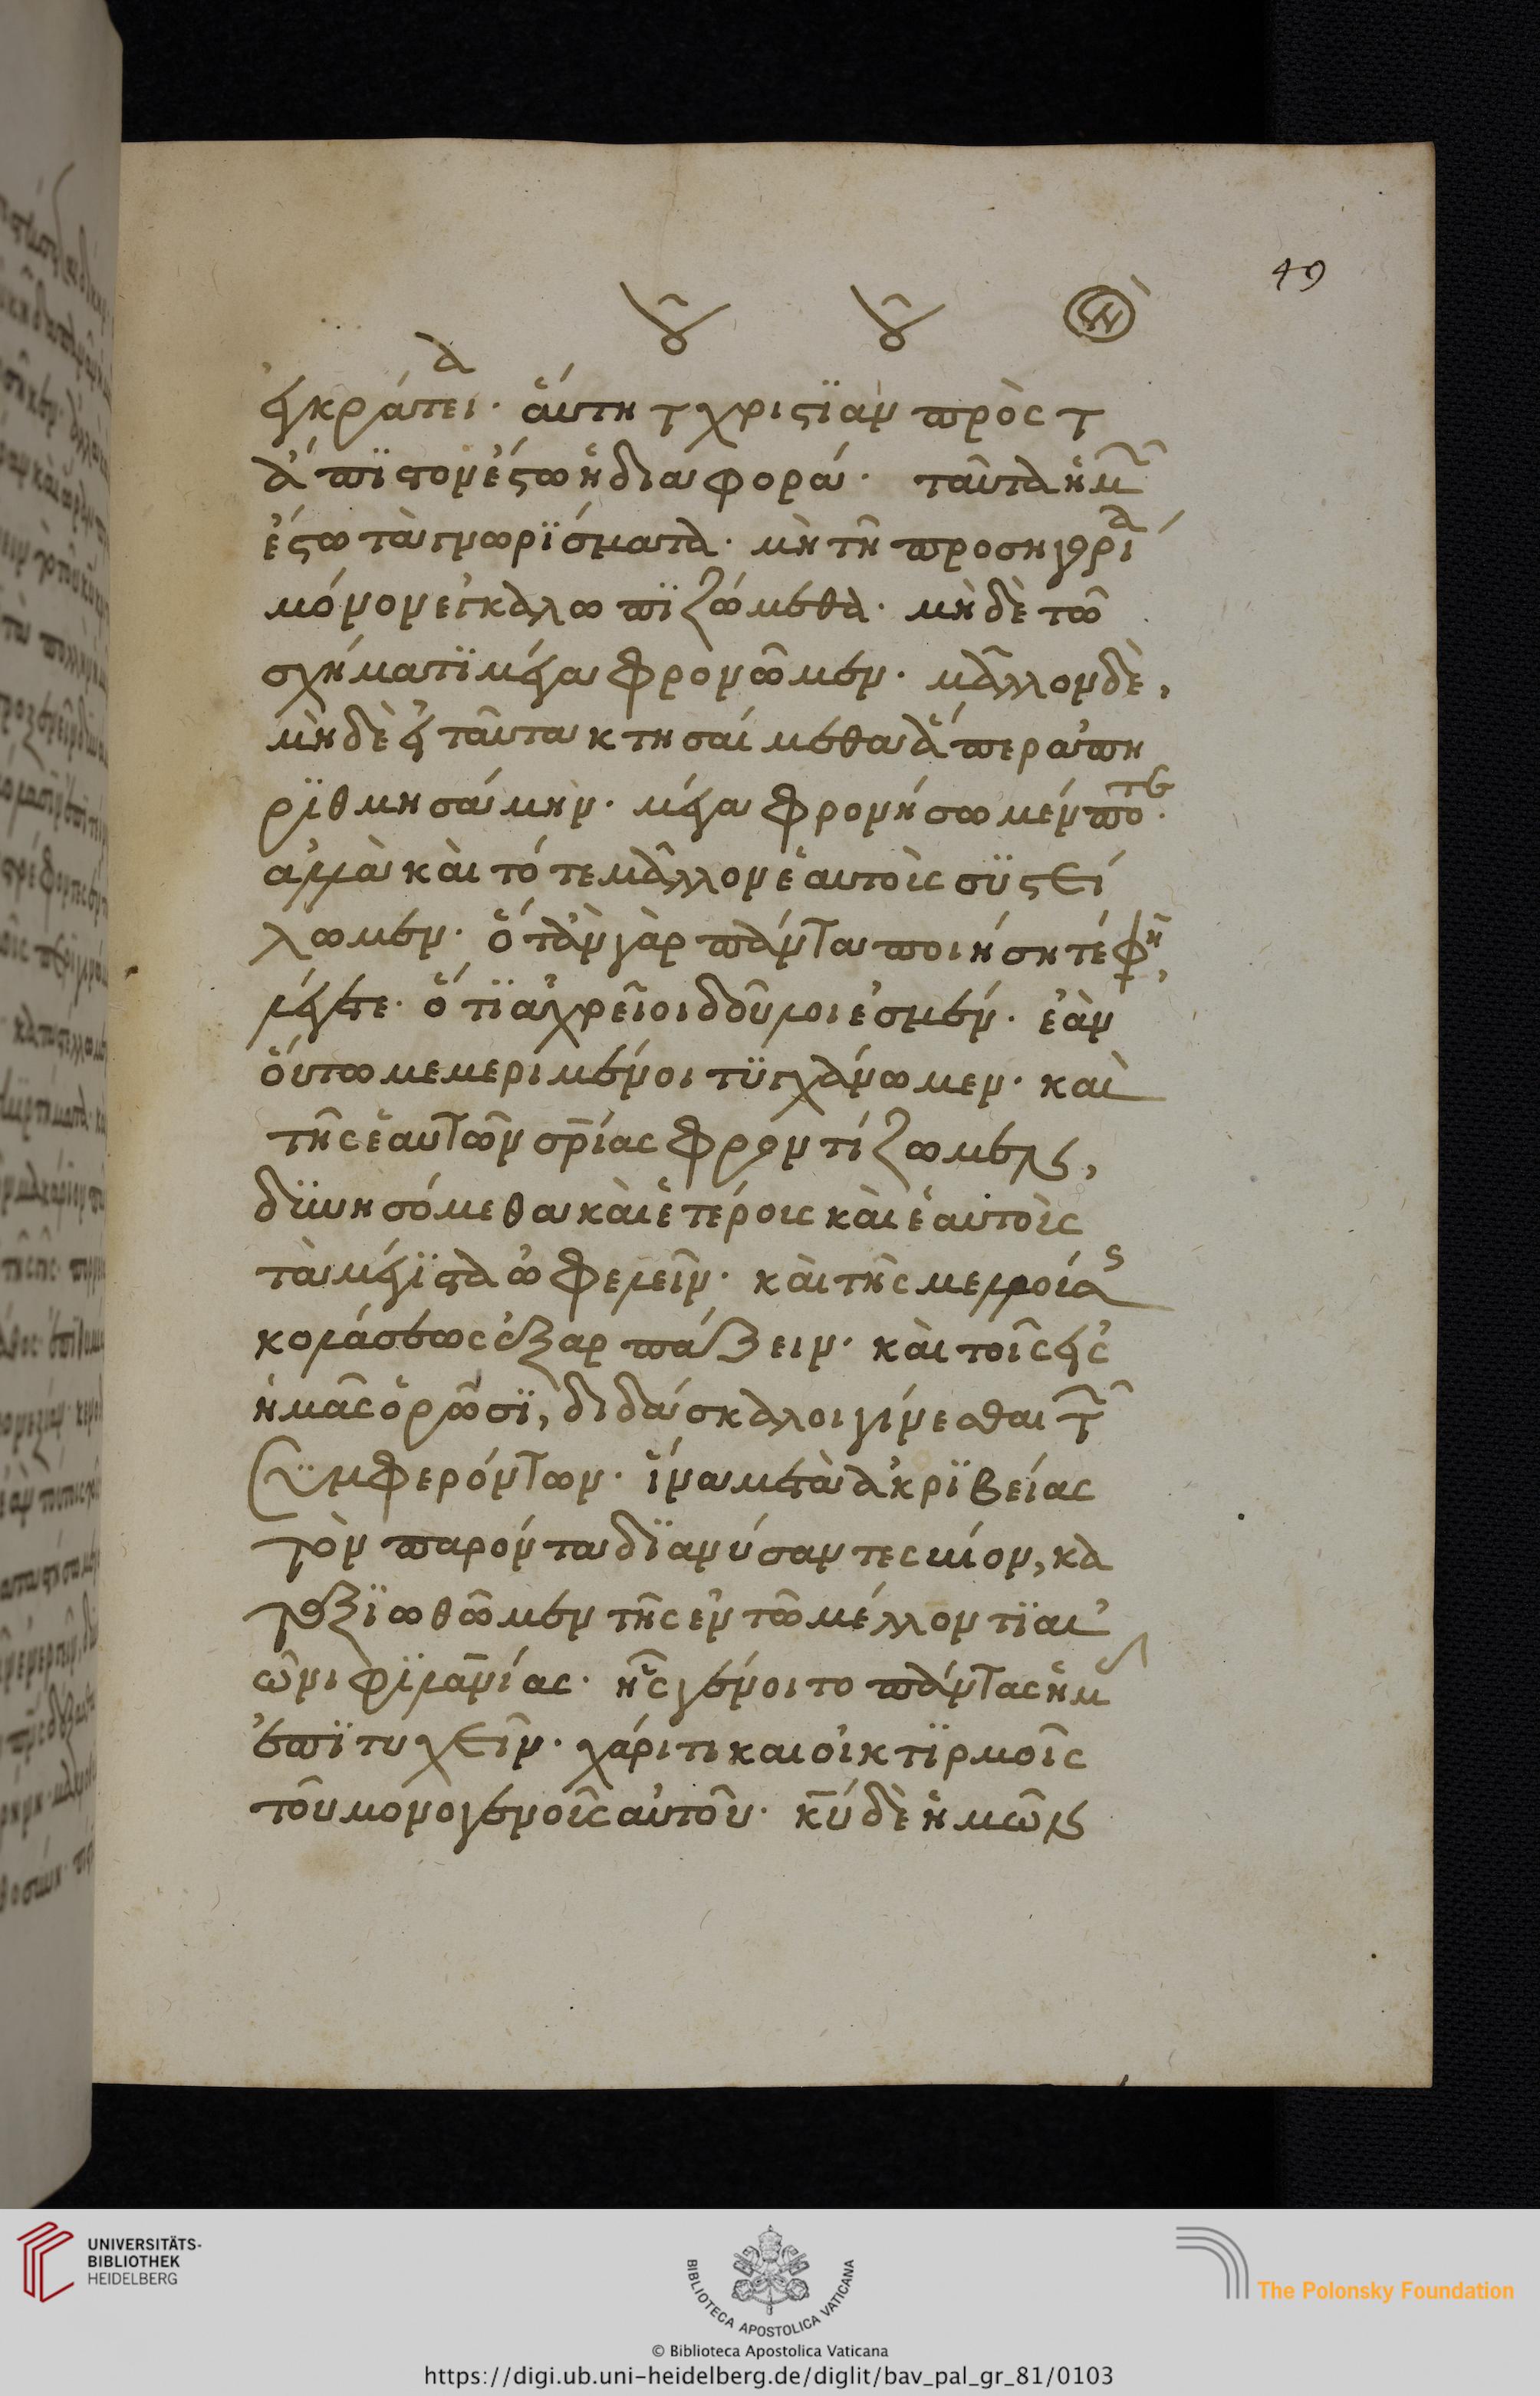 49
ἐγκράτεια· αὕτη τῶν χριστϊανῶν πρὸς τὸν
ἄπϊστον ἔστω ἡ διαφορά· ταῦτα ἡμῶν
ἔστω τὰ γνωρΐσματα· μὴ τῆ προσηγορία
μόνον ἐγκαλωπϊζώμεθα· μὴ δὲ τῶ
σχήματϊ μέγα φρονῶμεν· μᾶλλον δὲ,
μὴ δὲ εἰ ταῦτα κτησαίμεθα ἅπερ ἀπη
ρϊθμησάμην· μέγα φρονήσωμέν ποτε·
ἀλλὰ καὶ τότε μᾶλλον ἑαυτοὺς συστεί
λωμεν· ὅταν γὰρ πάντα ποιήσητέ φη,
λέγετε· ὅτϊ ἀχρεῖοι δοῦλοι ἐσμέν· ἐὰν
οὕτω μεμεριμνένοι τϋγχάνωμεν· καὶ
τῆς ἑαυτῶν σρίας φροντίζωμεν,
δϋνησόμεθα καὶ ἑτέροις καὶ ἑαυτοῖς
τὰ μέγϊστα ὠφελεῖν· καὶ τῆς μελλούσης
κολάσεως ἐξαρπάζειν· καὶ τοῖς εἰς
ἡμᾶς ὁρῶσϊ, διδάσκαλοι γίνεσθαι τῶν
συμφερόντων· ἵνα μετὰ ἀκρϊβείας
τὸν παρόντα δϊανύσαντες βίον, κα
ταξϊωθῶμεν τῆς ἐν τῶ μέλλοντϊ αἰ
ῶνι φϊλανίας· ἧς γένοιτο πάντας ἡμᾶς
ἐπϊτυχεῖν· χάριτι και οἰκτϊρμοῖς
τοῦ μονογενοῦς αὐτοῦ· κυ δὲ ἡμῶν
UNIVERSITÄTS-
BIBLIOTHEK
HEIDELBERG
BIBLIOTECA APOSTOLICA VATICANA
The Polonsky Foundation
© Biblioteca Apostolica Vaticana
https://digi.ub.uni-heidelberg.de/diglit/bav_pal_gr_81/0103